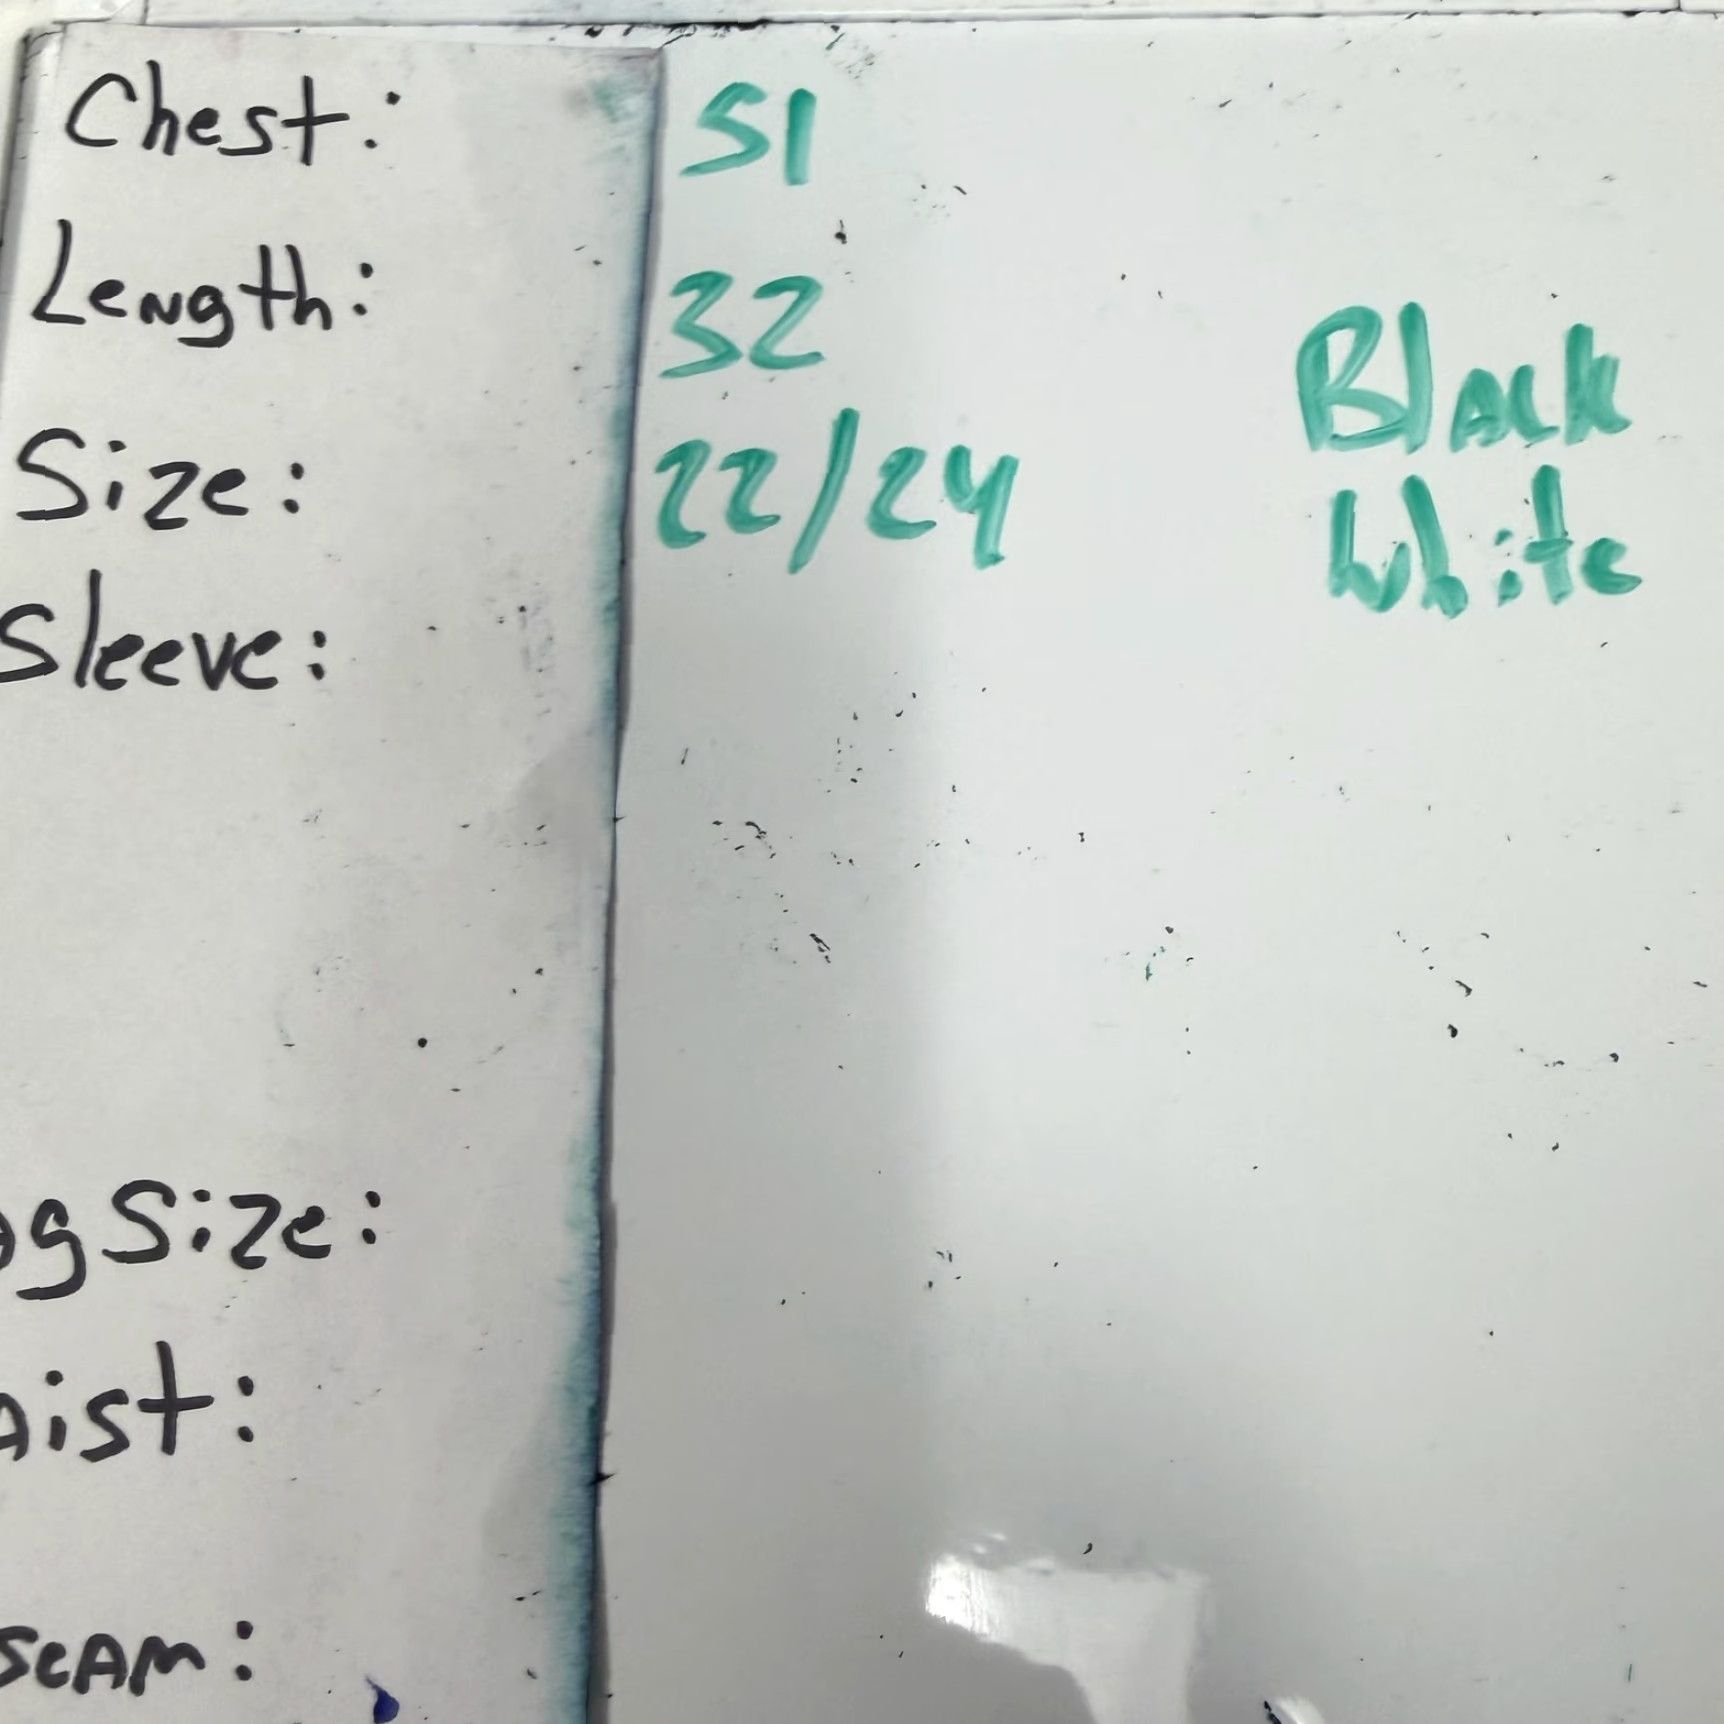 Chest: 51
Length: 32
Size: 22/24
Black
White
Sleeve:
g Size:
aist:
seam: